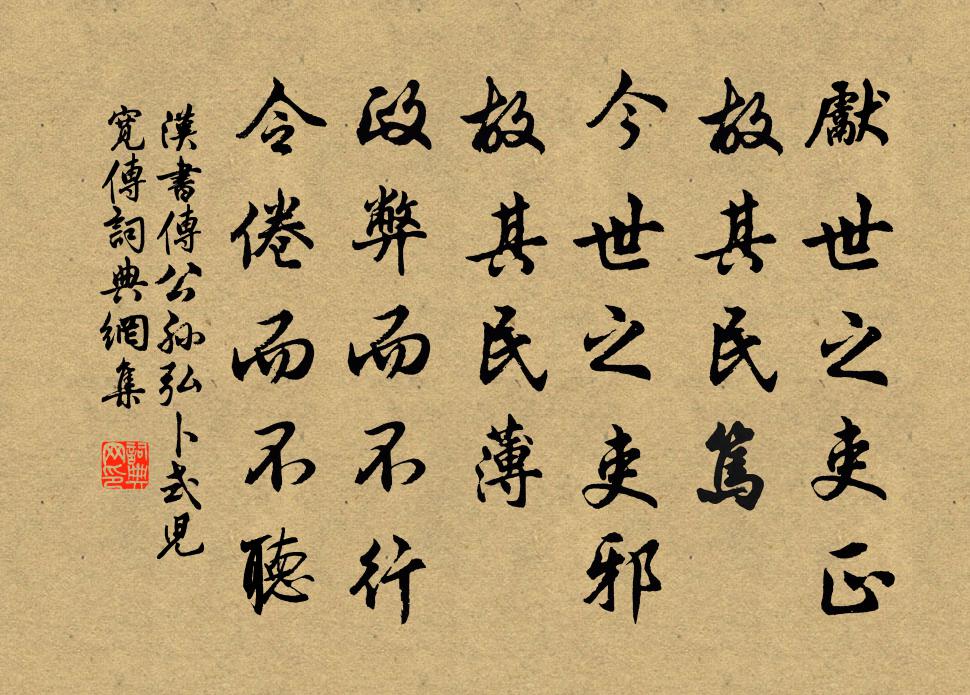 獻世之吏正
故其民篤
今世之吏邪
故其民薄
政弊而不行
令倦而不聽
漢書傳公孫弘卜式兒
寬傳詞典網集
詞典
网印